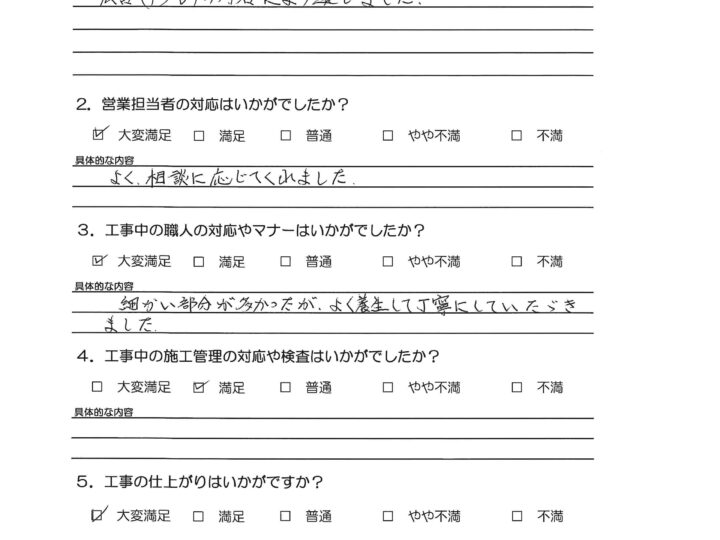 により しました.
2. 営業担当者の対応はいかがでしたか?
☑ 大変満足 □ 満足 □ 普通 □ やや不満 □ 不満
具体的な内容
よく、相談に応じてくれました.
3. 工事中の職人の対応やマナーはいかがでしたか?
☑ 大変満足 □ 満足 □ 普通 □ やや不満 □ 不満
具体的な内容
細かい部分が多かったが、よく養生して丁寧にしていただき
ました.
4. 工事中の施工管理の対応や検査はいかがでしたか?
□ 大変満足 ☑ 満足 □ 普通 □ やや不満 □ 不満
具体的な内容
5. 工事の仕上がりはいかがですか?
☑ 大変満足 □ 満足 □ 普通 □ やや不満 □ 不満